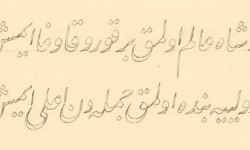 شاه عالم اولمق بر قورو قاوغا ايمش
ولييه بنده اولمق جمله دن اعلى ايمش